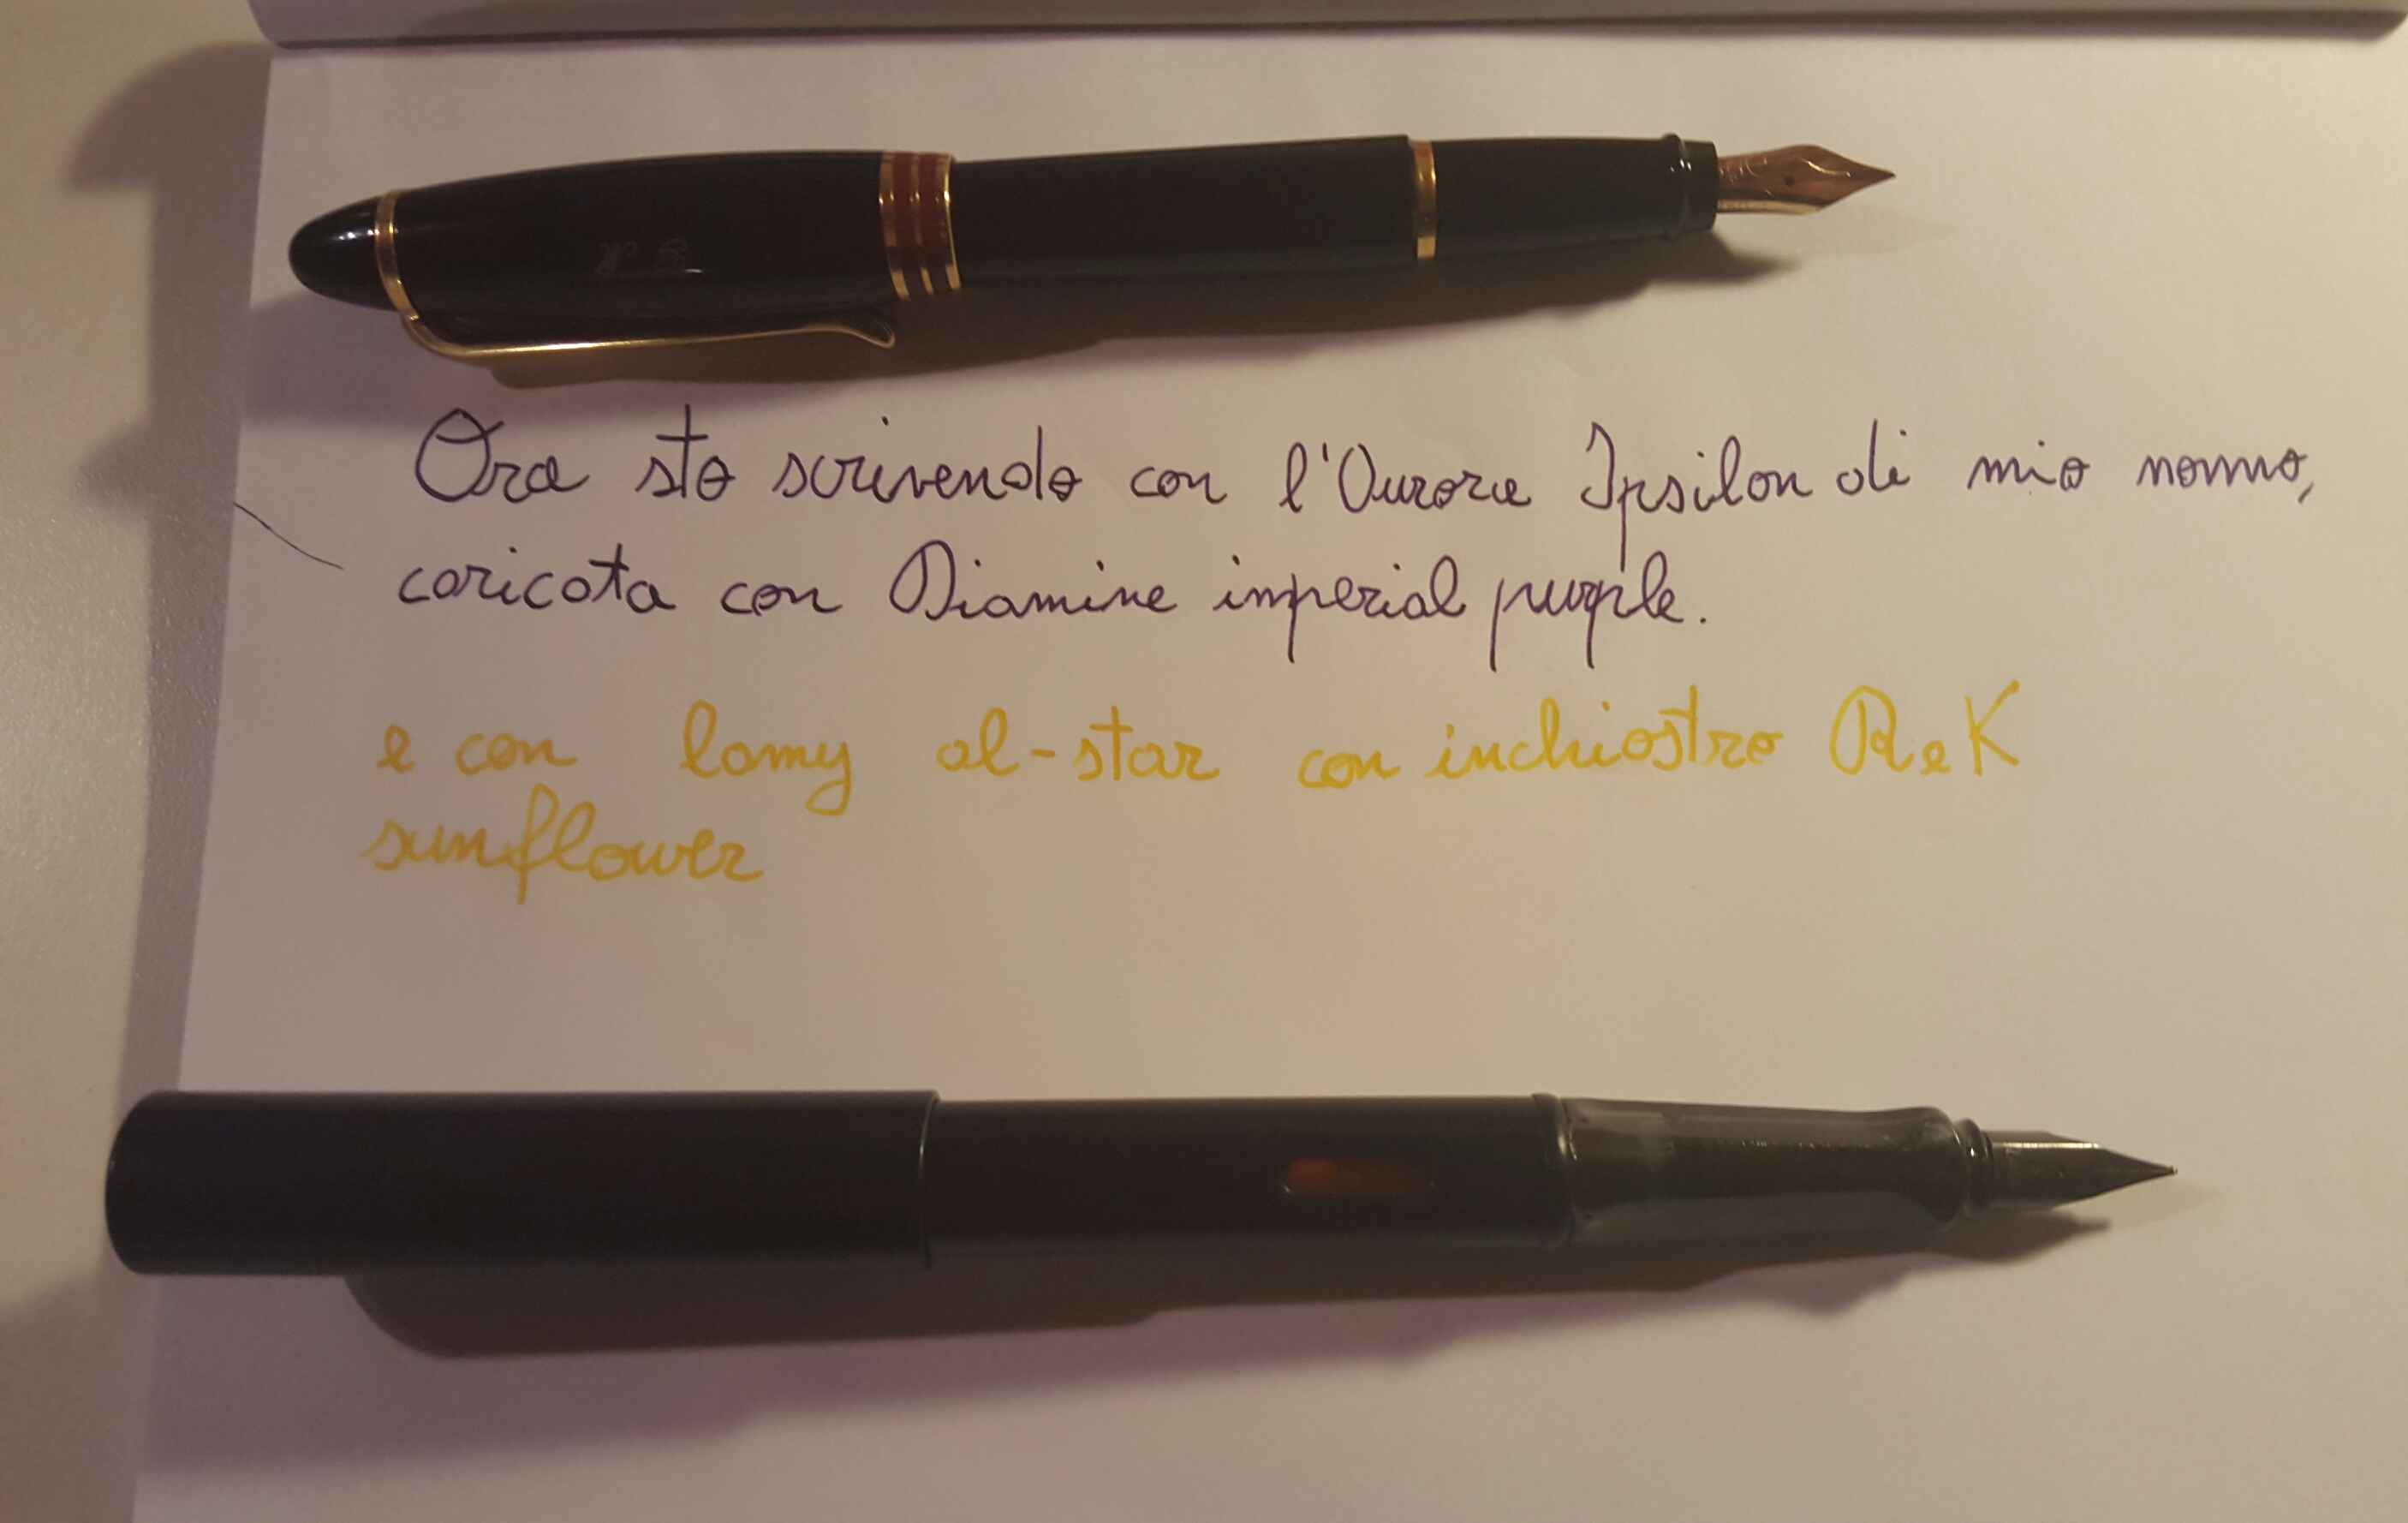 Ora sto scrivendo con l'Aurora Ipsilon di mio nonno,
caricata con Diamine imperial purple.
e con lamy al-star con inchiostro R e K
sunflower